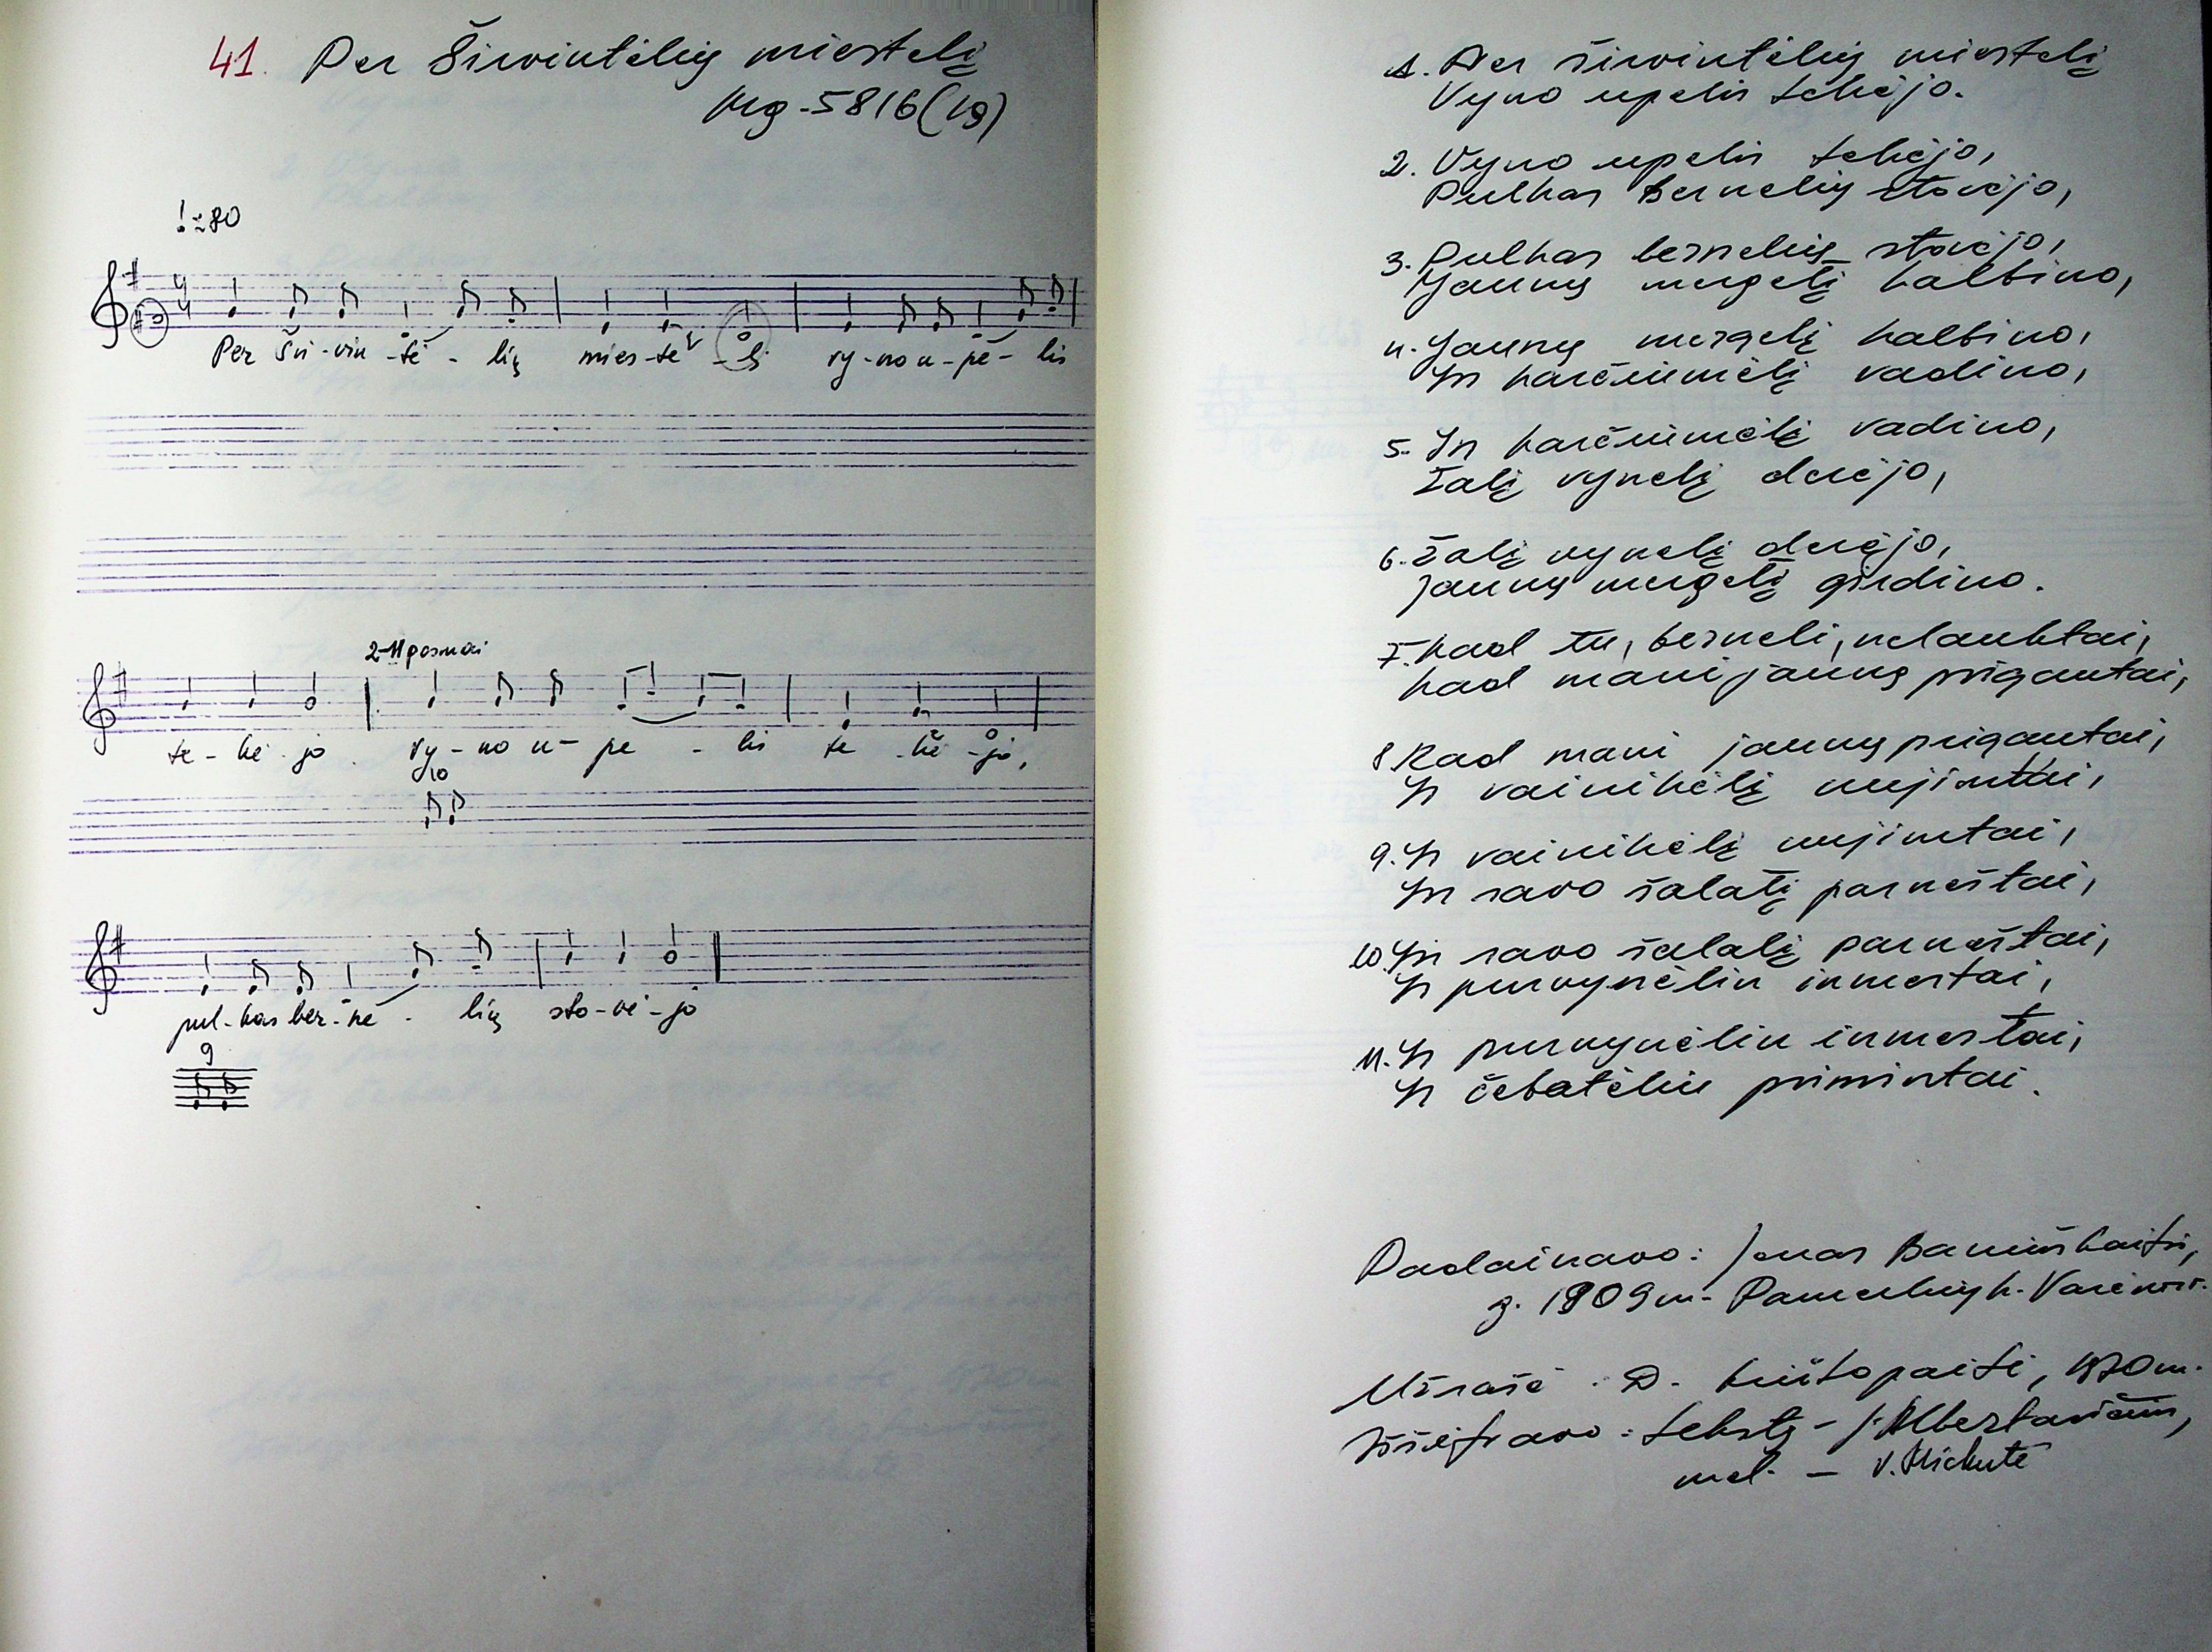 41. Per Širvintėlių miestelį
Mg-5816(19)
♩≈80
4
4
Per Šir-vin-tė-lių mies-te-lį vy-no u-pe-lis
2-11 posmai
te-kė-jo. vy-no u-pe-lis te-kė-jo,
10
pul-kas ber-ne-lių sto-vė-jo
9
1. Per širvintėlių miestelį
Vyno upelis tekėjo.
2. Vyno upelis tekėjo,
Pulkas bernelių stovėjo,
3. Pulkas bernelių stovėjo,
Jauną mergelį kalbino,
4. Jauną mergelį kalbino,
Yn karčiumėlį vadino,
5. Yn karčiumėlį vadino,
Žalį vynelį derėjo,
6. Žalį vynelį derėjo,
Jauną mergelį girdino.
7. Kad tu, berneli, nelauktai,
Kad mani jauną prigautai,
8 Kad mani jauną prigautai,
Yr vainikėlį nujimtai,
9. Yr vainikėlį nujimtai,
Yn savo šalalį parneštai,
10. Yn savo šalalį parneštai,
Yr purvynėlin inmestai,
11. Yr purvynėlin inmestai,
Yr čebatėliu primintai.
Padainavo: Jonas
g. 1909 m. k. Varėnos r.
Užrašė D. Krištopaitė, 1970 m.
Iššifravo: tekstą - J. Albertavičius,
mel. -